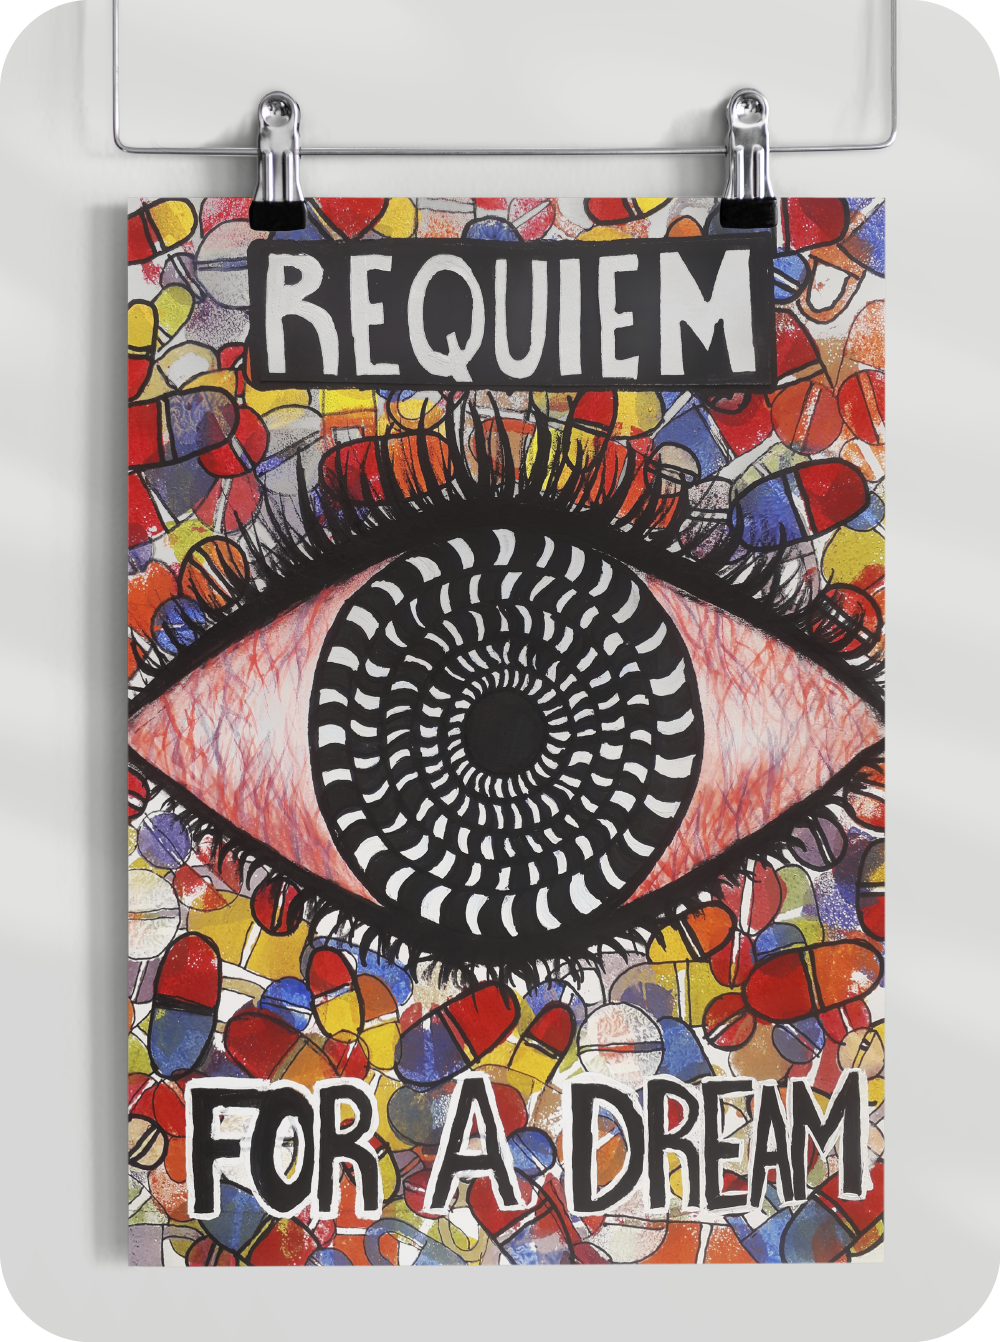 REQUIEM
FOR A DREAM